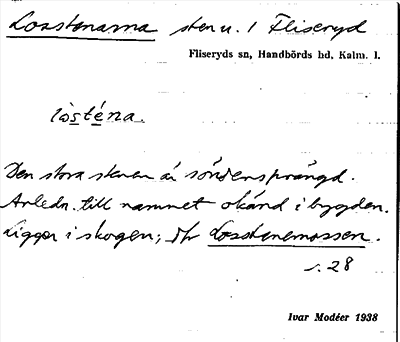 Losstenarna sten u. 1 Fliseryd
Fliseryds sn, Handbörds hd, Kalm. l.
lòsténa.
Den stora stenen är söndersprängd.
Anledn. till namnet okänd i bygden.
Ligger i skogen; jfr Losstenemossen.
s. 28
Ivar Modéer 1938